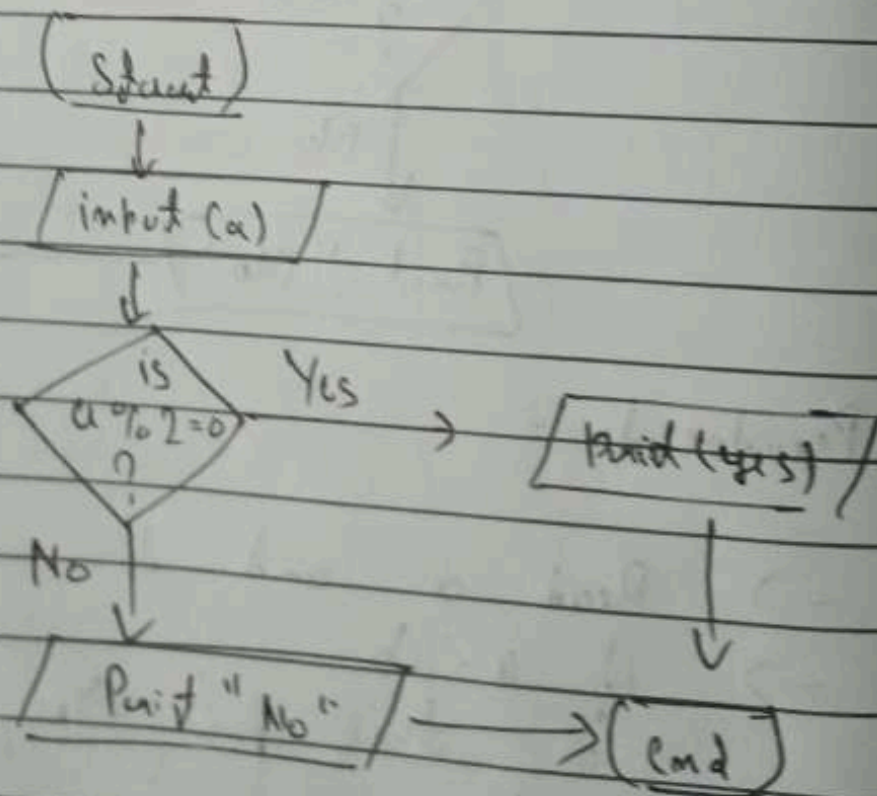 Start
input (a)
is
a % 2 = 0
?
Yes
Print (yes)
No
Print "No"
End